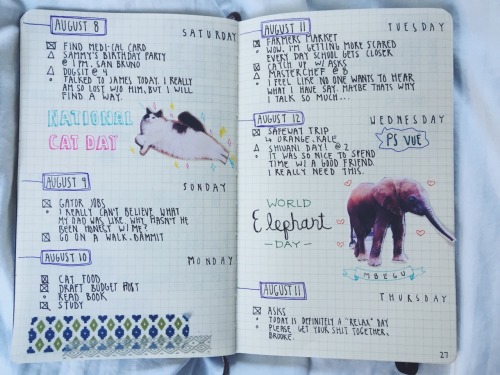 AUGUST 8
SATURDAY
FIND MEDI-CAL CARD
SAMMY'S BIRTHDAY PARTY
@ 1 PM. SAN BRUNO
DOGSIT @ 4
TALKED TO JAMES TODAY. I REALLY
AM SO LOST W/O HIM, BUT I WILL
FIND A WAY.
NATIONAL
CAT DAY
AUGUST 9
SUNDAY
GATOR JOBS
I REALLY CAN'T BELIEVE WHAT
MY DAD WAS LIKE. WHY HASN'T HE
BEEN HONEST W/ ME?
GO ON A WALK. DAMMIT
AUGUST 10
MONDAY
CAT FOOD
DRAFT BUDGET POST
READ BOOK
STUDY
AUGUST 11
TUESDAY
FARMERS MARKET
WOW. I'M GETTING MORE SCARED
EVERY DAY SCHOOL GETS CLOSER
CATCH UP W/ ASKS
MASTERCHEF @ 8
I FEEL LIKE NO ONE WANTS TO HEAR
WHAT I HAVE SAY. MAYBE THATS WHY
I TALK SO MUCH...
AUGUST 12
WEDNESDAY
SAFEWAY TRIP
↳ ORANGE. KALE
SHIVANI DAY! @ 2
IT WAS SO NICE TO SPEND
TIME W/ A GOOD FRIEND.
I REALLY NEED THIS.
PS VUE
WORLD
Elephant
- DAY -
MBEGU
AUGUST 11
THURSDAY
ASKS
TODAY IS DEFINITELY A "RELAX" DAY
PLEASE GET YOUR SHIT TOGETHER,
BROOKE.
27